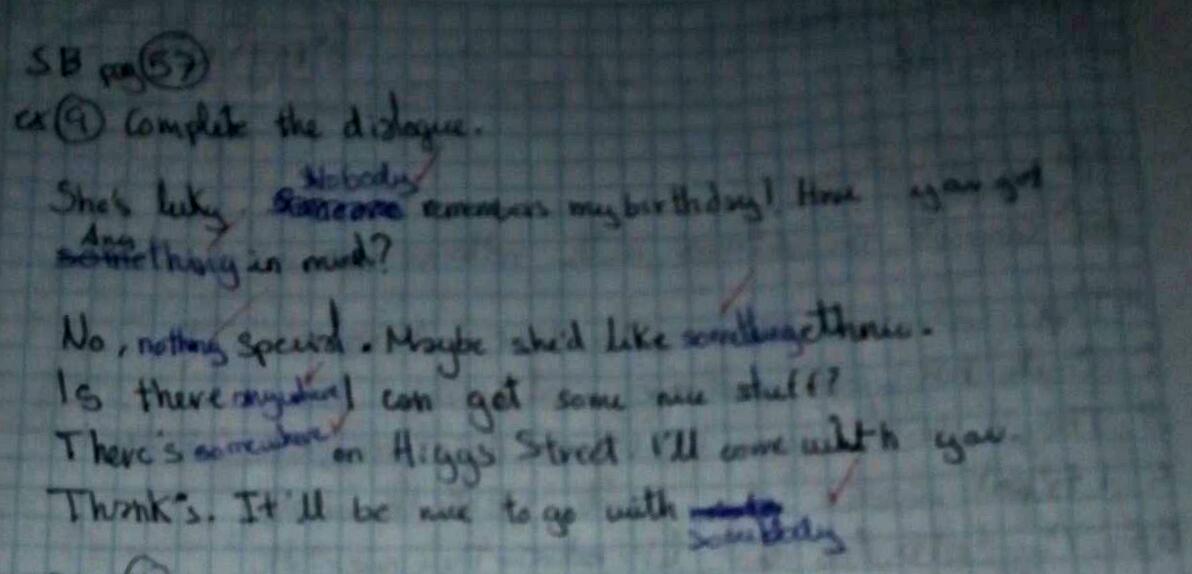 SB pag 57
ex 9 Complete the dialogue.
Nobody
She's luky. Someone remembers my birthday! Have you got
Any
something in mind?
No, nothing special. Maybe she'd like something ethnic.
Is there anywhere I can get some nice stuff?
There's somewhere on Higgs Street. I'll come with you.
Thank's. It'll be nice to go with
somebody